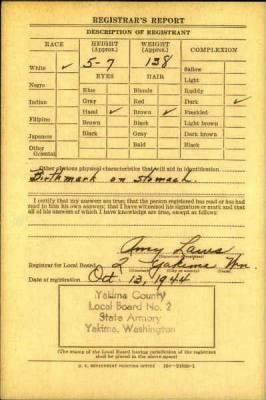 REGISTRAR'S REPORT
DESCRIPTION OF REGISTRANT
RACE HEIGHT (Approx.) WEIGHT (Approx.) COMPLEXION
White ✓ 5-7 138 Sallow
EYES HAIR Light
Negro Blue Blonde Ruddy
Indian Gray Red Dark ✓
Hazel ✓ Brown ✓ Freckled
Filipino Brown Black Light brown
Japanese Black Gray Dark brown
Other Oriental Bald Black
Other obvious physical characteristics that will aid in identification
Birthmark on stomach.
I certify that my answers are true; that the person registered has read or has had
read to him his own answers; that I have witnessed his signature or mark and that
all of his answers of which I have knowledge are true, except as follows:
Amy Laws
Registrar for Local Board 2 Yakima Wn.
Date of registration Oct. 13, 1944
Yakima County
Local Board No. 2
State Armory
Yakima, Washington
(The stamp of the Local Board having jurisdiction of the registrant
shall be placed in the above space)
U. S. GOVERNMENT PRINTING OFFICE